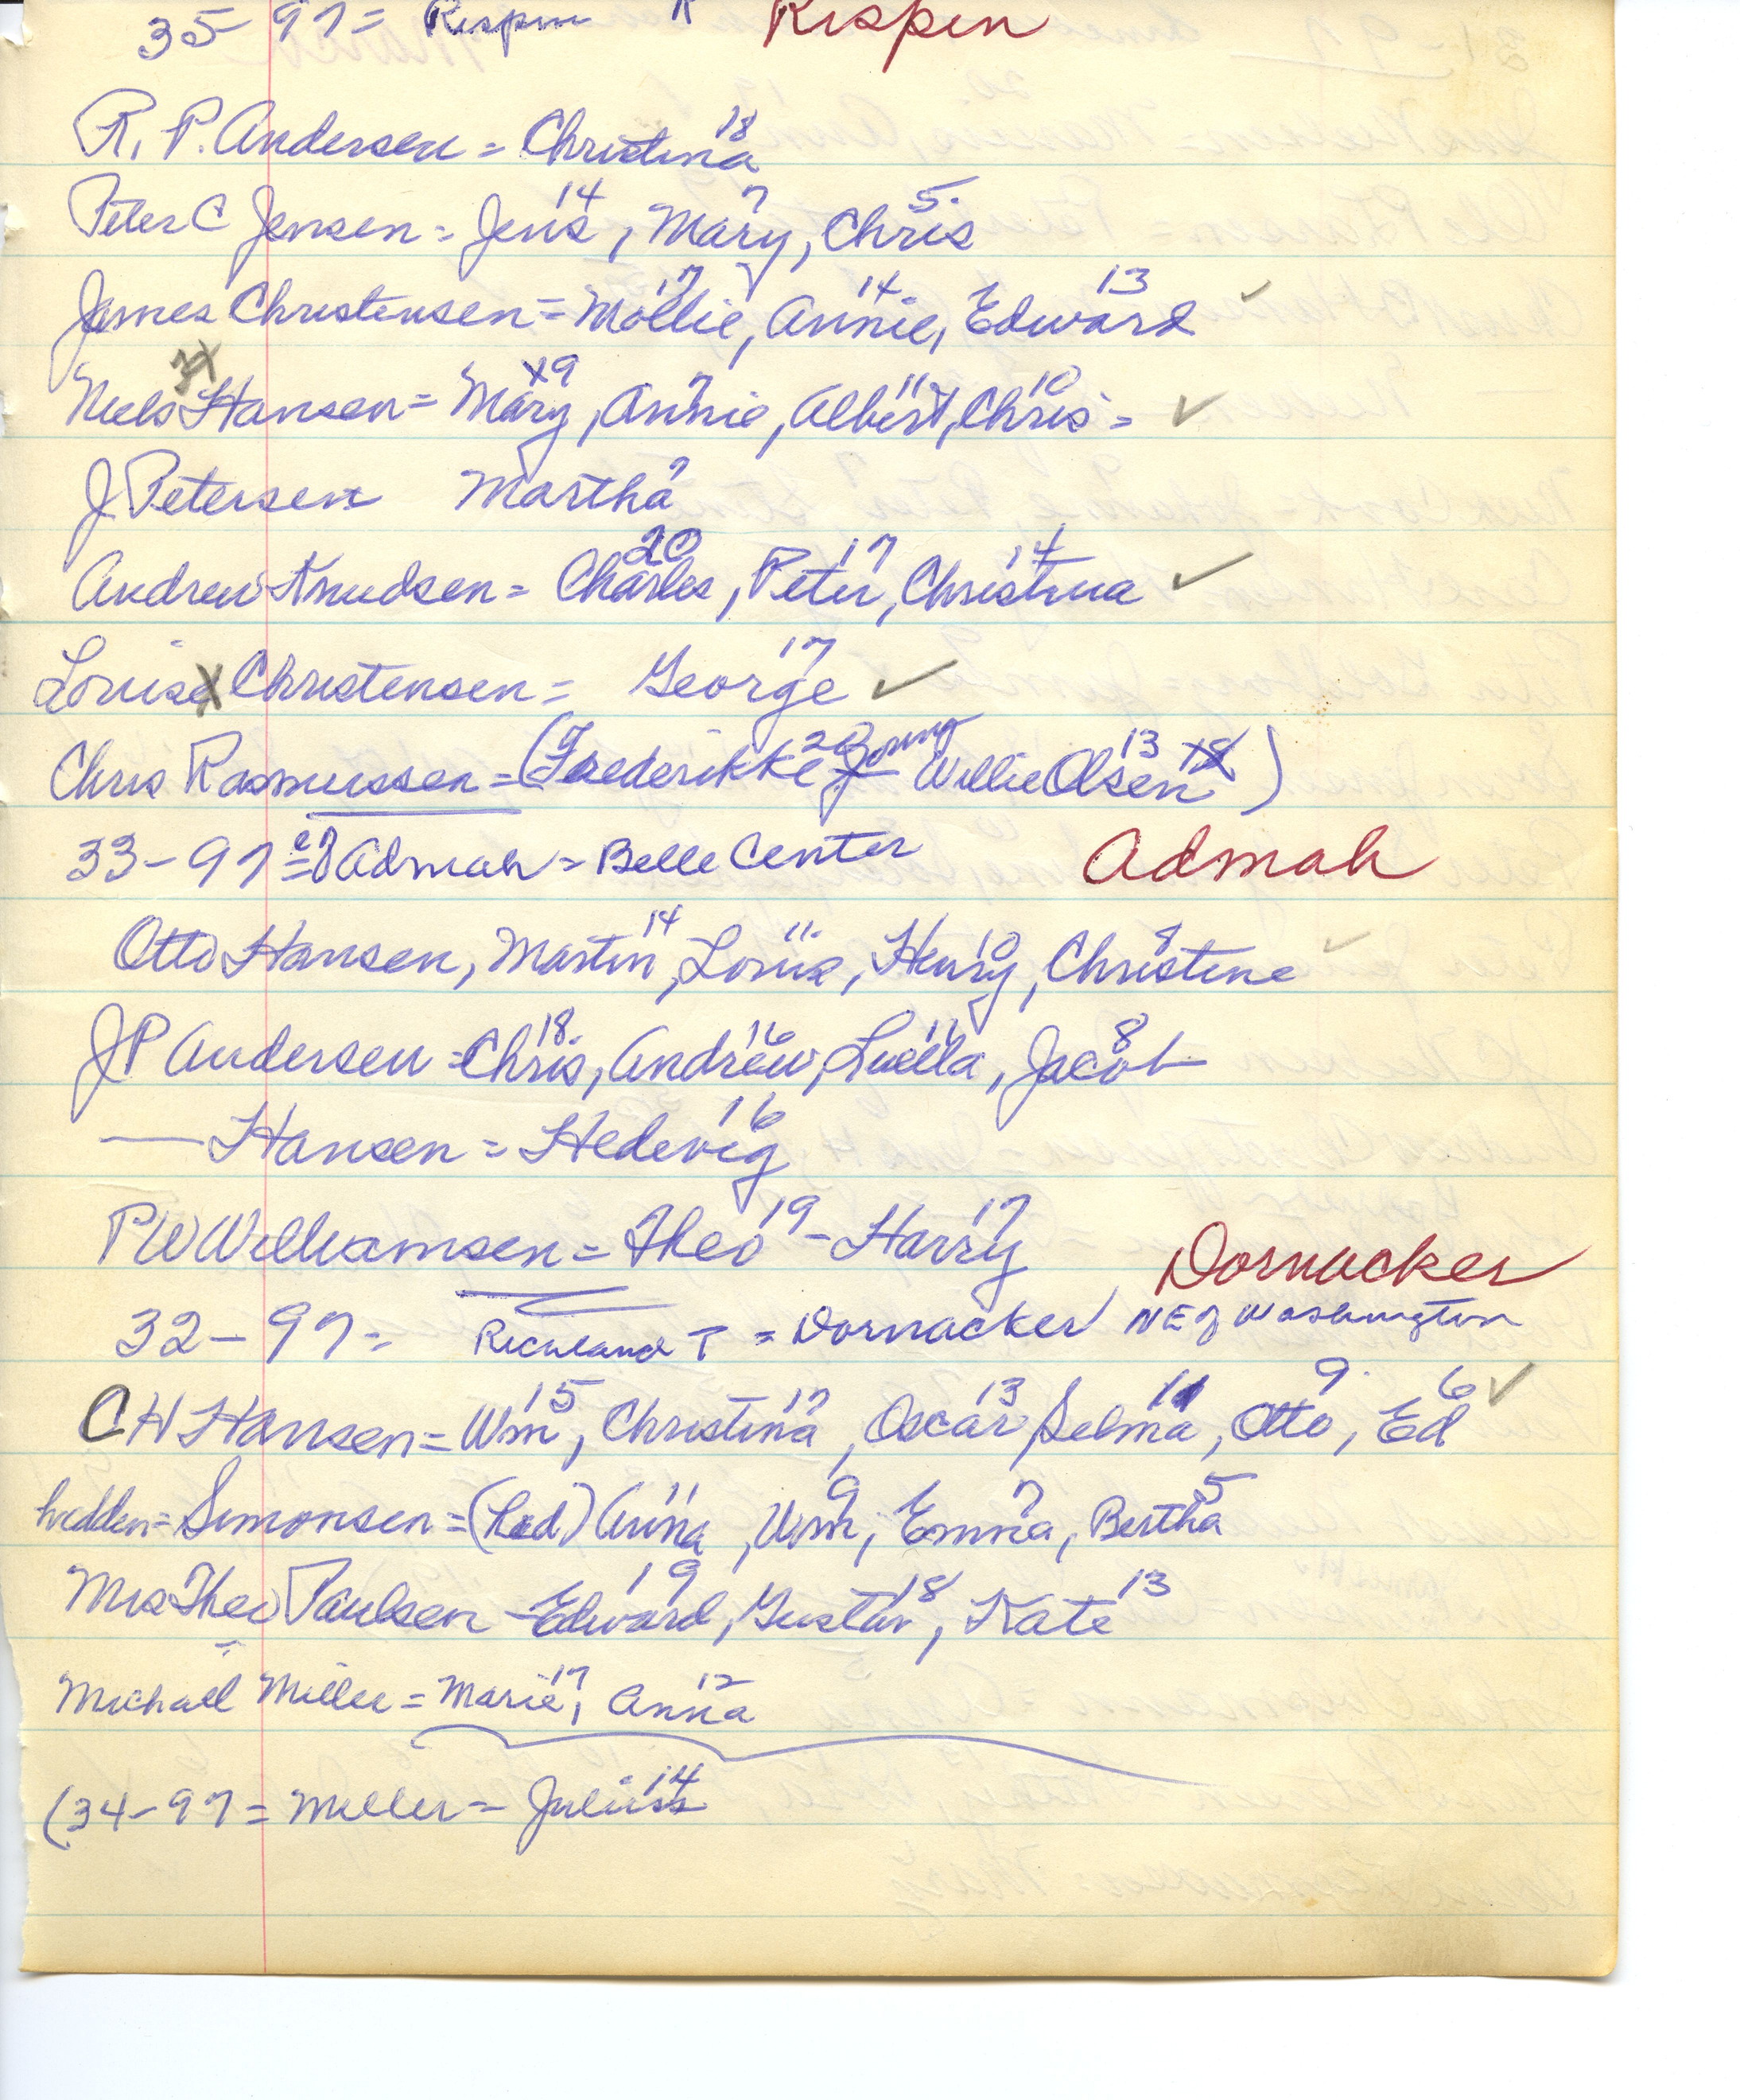 35-97= Rispin R Rispin
18
R. P. Andersen = Christina
14 7 5.
Peter C Jensen = Jens, Mary, Chris
17 14. 13
James Christensen = Mollie, Annie, Edward ✓
19 7 11 10
Niels Hansen = Mary, Annie, Albert, Chris = ✓
9
J Petersen Martha
20 17 14
Andrew Knudsen = Charles, Peter, Christina ✓
17
Louise Christensen = George ✓
20 Young 13 18
Chris Rasmussen = (Frederikke Willie Olsen)
33-97 = Admah = Belle Center Admah
14 11. 10 8
Otto Hansen, Martin, Louie, Henry, Christine ✓
18. 16 11 8
J P Andersen = Chris, Andrew, Luella, Jacob
16
— Hansen = Hedevig
19 17
P W Williamsen = Theo - Harry
Dornacker
32-97 = Richland T = Dornacker NE of Washington
15 17 13 11 9. 6 ✓
C H Hansen = Wm, Christina, Oscar, Selma, Otto, Ed
11 9 7 5
Simonsen = Anna, Wm, Emma, Bertha
19 18 13
Mrs Theo Paulsen - Edward, Gustav, Kate
17 12
Michael Miller = Marie, Anna
14
(34-97 = Miller = Julius